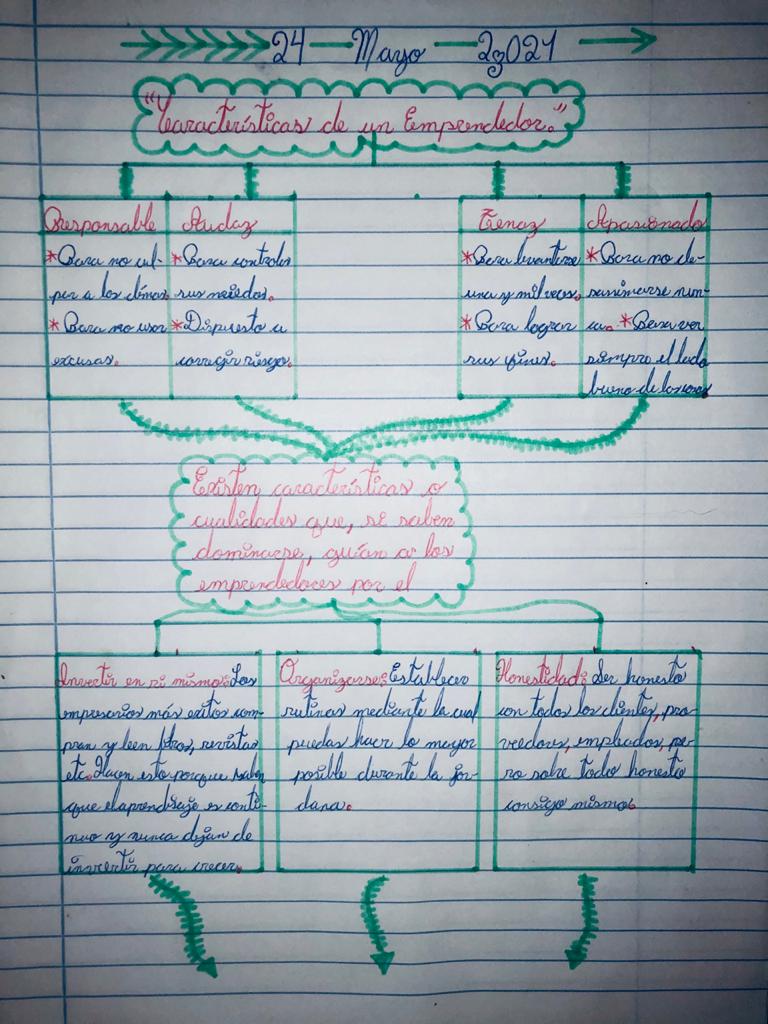 24 — Mayo — 2021
"Características de un Emprendedor."
Responsable
*Para no cul-
par a los demas.
*Para no usar
excusas.
Audaz
*Para controlar
sus miedos.
*Dispuesto a
corregir riesgo.
Tenaz
*Para levantarse
una y mil veces.
*Para lograr
sus fines.
Apasionado
*Para no de-
sanimarse nun-
ca. *Para ver
siempre el lado
bueno de las cosas
Existen características o
cualidades que, si saben
dominarse, guían a los
emprendedores por el
Invertir en si mismo: Los
empresarios más exitos com-
pran y leen libros, revistas
etc. Hacen esto porque saben
que el aprendizaje es conti-
nuo y nunca dejan de
invertir para crecer.
Organizarse: Establecer
rutinas mediante la cual
puedas hacer lo mayor
posible durante la jor-
dana.
Honestidad: Ser honesto
con todos los clientes, pro-
veedores, empleados, pe-
ro sobre todo honesto
consigo mismo.